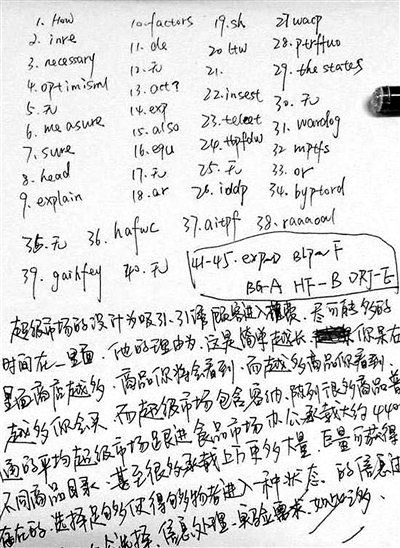 1. How 10. factors 19. sh 27 wacp
2. inre 11. de 20 ltw 28. ptrffuo
3. necessary 12. 无 21. 29. the states
4. optimisml 13. act? 22. insest 30. 无
5. 无 14. exp 23. teleet 31. wandog
6. measure 15. also 24. 32 mptfs
7. sure 16. equ 25. 无 33. or
8. head 17. 无 26. iddp 34. byptord
9. explain 18. ar
35. 无 36. hafwc 37. aitpf 38. raaaoul
39. gaihfey 40. 无 41-45. exp-D BLP-F
BG-A HF-B DRJ-E
超级市场的设计为吸引. 引诱顾客进入 尽可能多的
时间在一里面. 他的理由为: 这是简单越长 你呆在
里面商店越多. 商品你将会看到. 而越多商品你看到.
越多你会买. 而超级市场包含容纳. 陈列很多商品普
通的平均超级市场跟进食品市场办公承载大约440
不同商品目录. 甚至很多承载上万更多大量. 巨量可获得
存在的选择足够使得购物者进入一种状态. 的信息过
选择. 信息处理 实验需求. 如此之多.